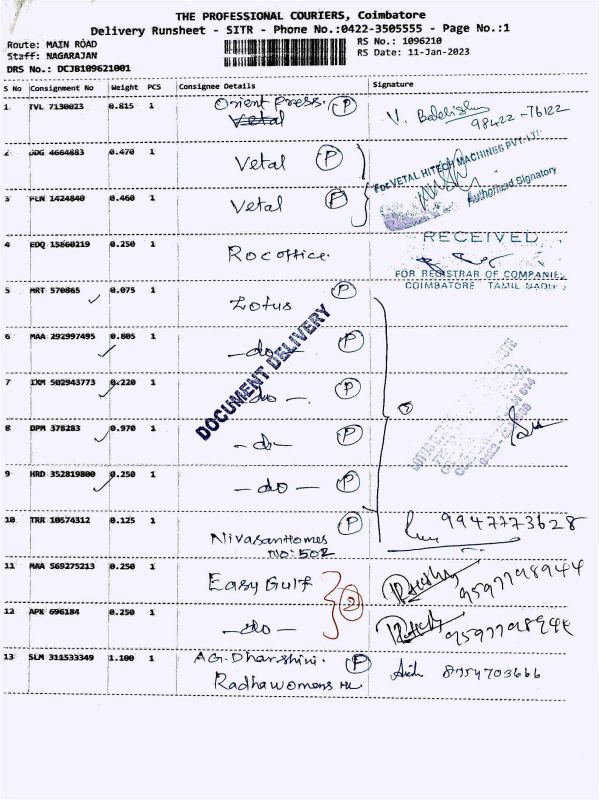 THE PROFESSIONAL COURIERS, Coimbatore
Delivery Runsheet - SITR - Phone No.:0422-3505555 - Page No.:1
Route: MAIN ROAD
RS No.: 1096210
Staff: NAGARAJAN
RS Date: 11-Jan-2023
DRS No.: DCJB109621001
S No Consignment No Weight PCS Consignee Details Signature
1 TVL 7130023 0.815 1 Orient Press. P V. 98422-76122
Vetal
2 JDG 4664883 0.470 1 Vetal P
For VETAL HITECH MACHINES PVT.LTD
3 PLN 1424840 0.460 1 Vetal P
Authorised Signatory
4 EDQ 15860219 0.250 1 Roc office.
RECEIVED
FOR REGISTRAR OF COMPANIES
COIMBATORE TAMIL NADU
5 MRT 570865 0.075 1 Lotus P
DOCUMENT DELIVERY
6 MAA 292997495 0.805 1 -do- P
7 IXM 502943773 0.220 1 -do- P
8 DPM 378283 0.970 1 -do- P
9 HRD 352819800 0.250 1 -do- P
10 TRR 10574312 0.125 1 Nivasan Homes P 9947773628
NO: 502
11 MAA 569275213 0.250 1 Easy Gulf 9597798944
2
12 APK 696184 0.250 1 -do- 9597798944
13 SLM 311533349 1.100 1 AG. Dharshini. P 8754703666
Radha womens